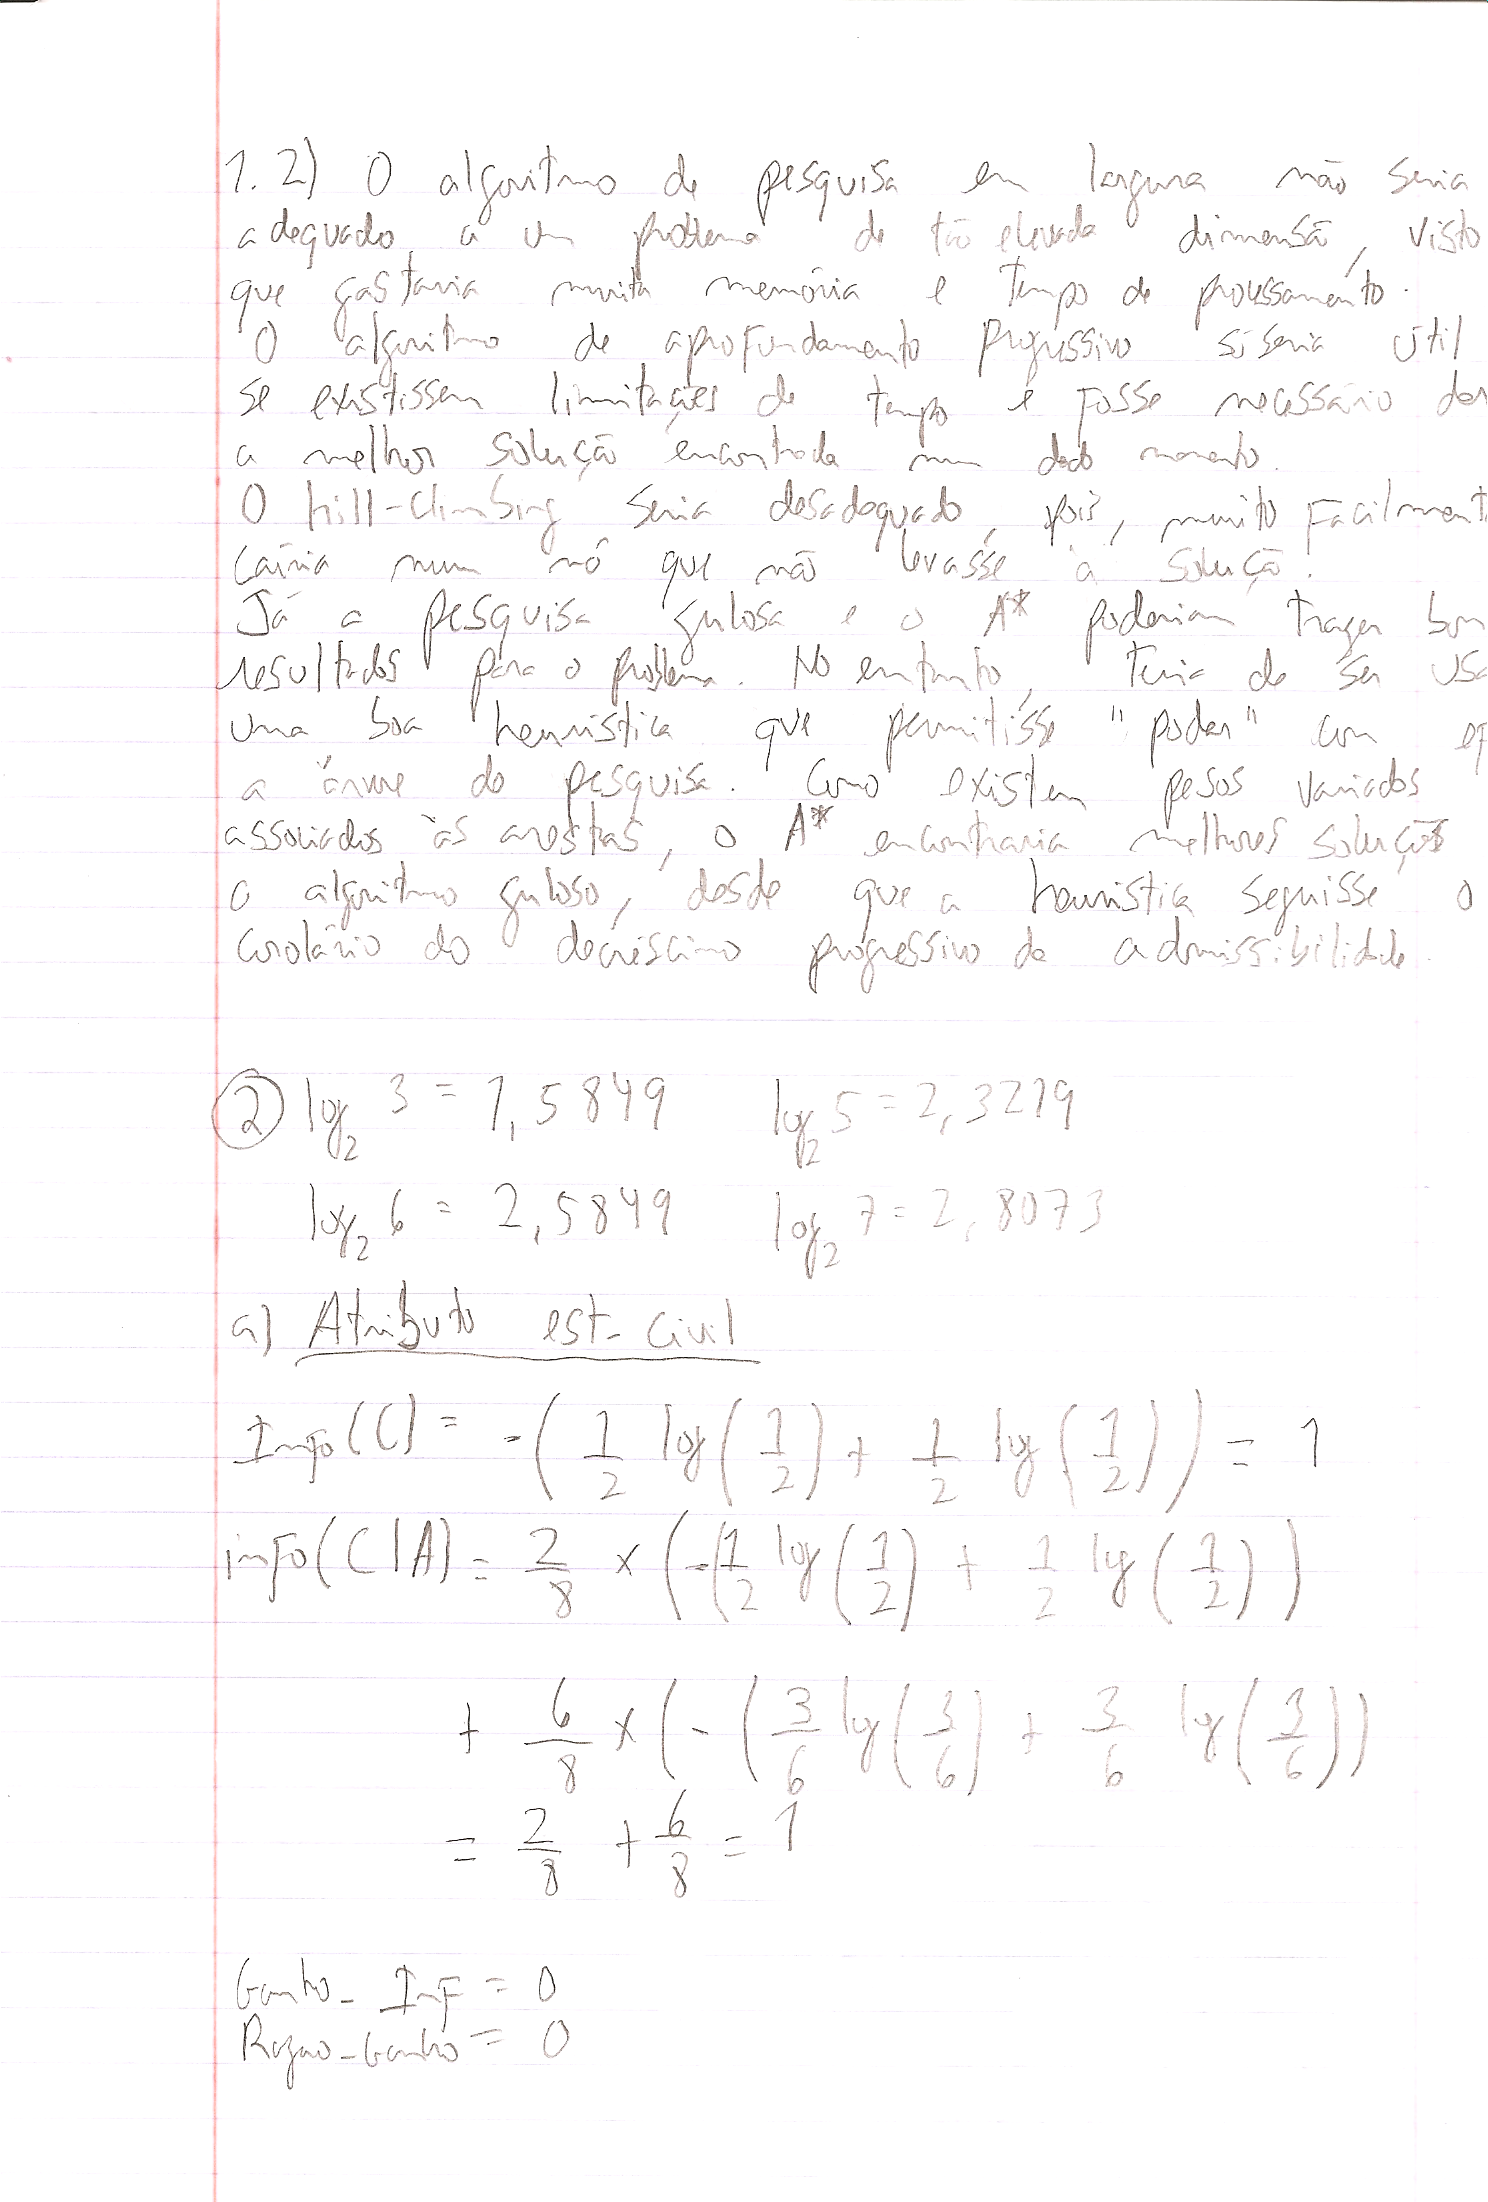 1.2) O algoritmo de pesquisa em largura não seria
adequado a um problema de tão elevada dimensão, visto
que gastaria muita memória e tempo de processamento.
O algoritmo de aprofundamento progressivo só seria útil
se existissem limitações de tempo e fosse necessário dar
a melhor solução encontrada num dado momento.
O hill-climbing seria desadequado, pois, muito facilment
cairia num nó que não levasse à solução.
Já a pesquisa gulosa e o A* poderiam trazer bon
resultados para o problema. No entanto, teria de ser usa
uma boa heurística que permitisse "podar" com ef
a árvore de pesquisa. Como existem pesos variados
associados às arestas, o A* encontraria melhores soluções
o algoritmo guloso, desde que a heurística seguisse o
corolário do decréscimo progressivo de admissibilidade.
2 log₂ 3 = 1,5849 log₂ 5 = 2,3219
log₂ 6 = 2,5849 log₂ 7 = 2,8073
a) Atributo est-civil
Info(C) = -(1/2 log(1/2) + 1/2 log(1/2)) = 1
info(C|A) = 2/8 × (-(1/2 log(1/2) + 1/2 log(1/2))
+ 6/8 × (-(3/6 log(3/6) + 3/6 log(3/6))
= 2/8 + 6/8 = 1
Ganho_Inf = 0
Razao_Ganho = 0